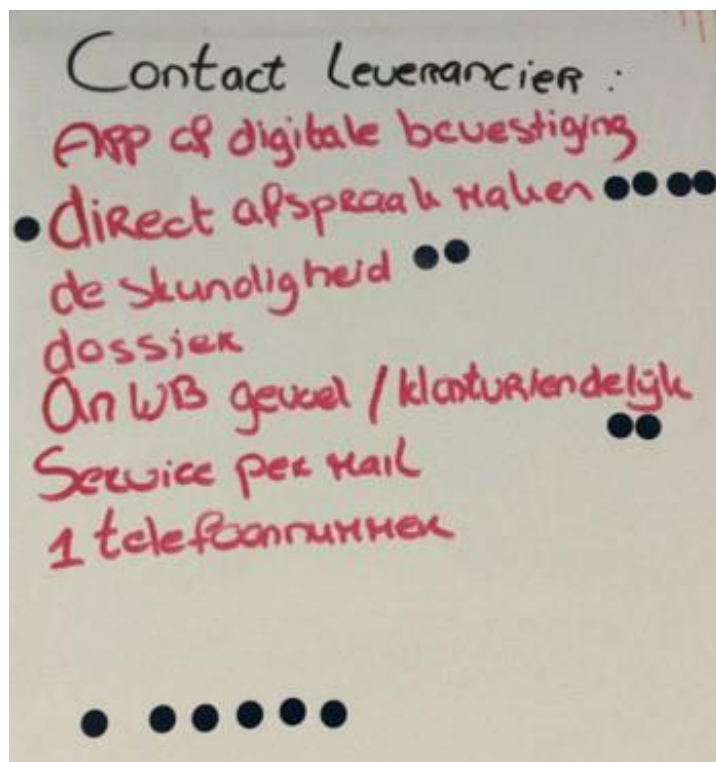 Contact Leverancier :
App of digitale bevestiging
direct afspraak maken
deskundigheid
dossier
ANWB gevoel / klantvriendelijk
Service per mail
1 telefoonnummer